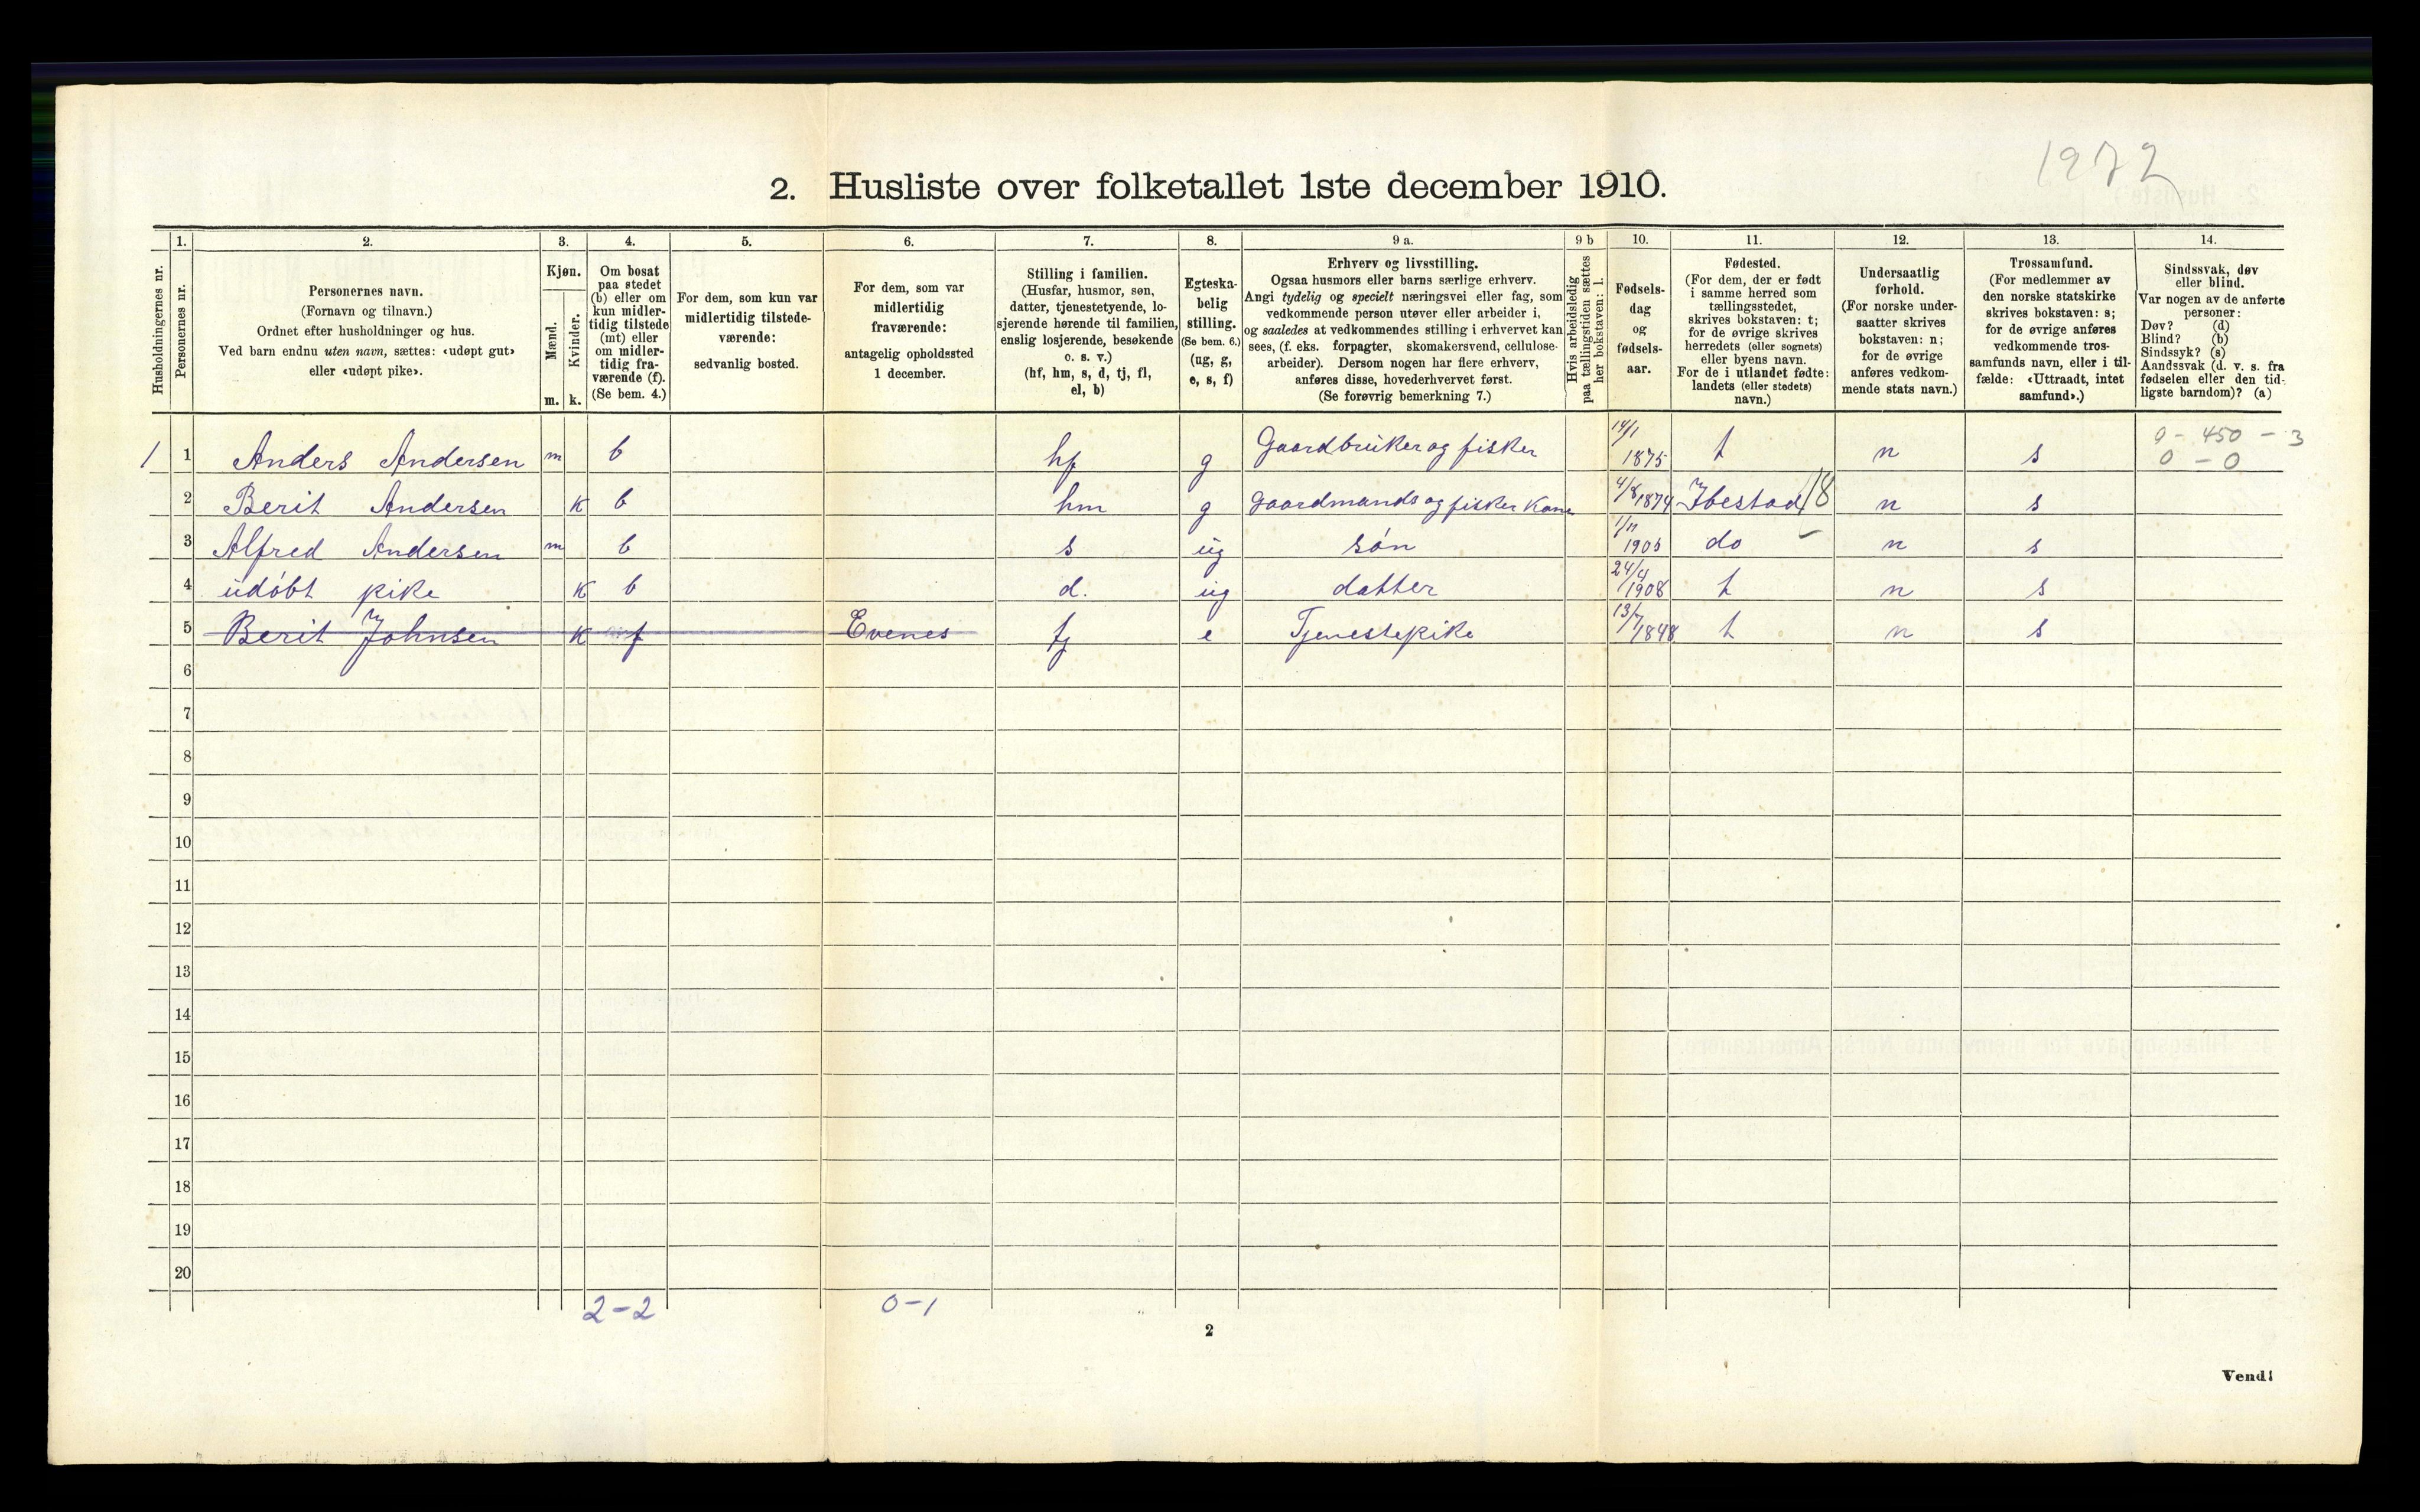 1972
2. Husliste over folketallet 1ste december 1910.
Husholdningernes nr.
1. Personernes nr.
2. Personernes navn.
(Fornavn og tilnavn.)
Ordnet efter husholdninger og hus.
Ved barn endnu uten navn, sættes: «udøpt gut»
eller «udøpt pike».
3. Kjøn.
Mænd. m.
Kvinder. k.
4. Om bosat
paa stedet
(b) eller om
kun midler-
tidig tilstede
(mt) eller
om midler-
tidig fra-
værende (f).
(Se bem. 4.)
5. For dem, som kun var
midlertidig tilstede-
værende:
sedvanlig bosted.
6. For dem, som var
midlertidig
fraværende:
antagelig opholdssted
1 december.
7. Stilling i familien.
(Husfar, husmor, søn,
datter, tjenestetyende, lo-
sjerende hørende til familien,
enslig losjerende, besøkende
o. s. v.)
(hf, hm, s, d, tj, fl,
el, b)
8. Egteska-
belig
stilling.
(Se bem. 6.)
(ug, g,
e, s, f)
9 a. Erhverv og livsstilling.
Ogsaa husmors eller barns særlige erhverv.
Angi tydelig og specielt næringsvei eller fag, som
vedkommende person utøver eller arbeider i,
og saaledes at vedkommendes stilling i erhvervet kan
sees, (f. eks. forpagter, skomakersvend, cellulose-
arbeider). Dersom nogen har flere erhverv,
anføres disse, hovederhvervet først.
(Se forøvrig bemerkning 7.)
9 b Hvis arbeidsledig
paa tællingstiden sættes
her bokstaven: l.
10. Fødsels-
dag
og
fødsels-
aar.
11. Fødested.
(For dem, der er født
i samme herred som
tællingsstedet,
skrives bokstaven: t;
for de øvrige skrives
herredets (eller sognets)
eller byens navn.
For de i utlandet fødte:
landets (eller stedets)
navn.)
12. Undersaatlig
forhold.
(For norske under-
saatter skrives
bokstaven: n;
for de øvrige
anføres vedkom-
mende stats navn.)
13. Trossamfund.
(For medlemmer av
den norske statskirke
skrives bokstaven: s;
for de øvrige anføres
vedkommende tros-
samfunds navn, eller i til-
fælde: «Uttraadt, intet
samfund».)
14. Sindssvak, døv
eller blind.
Var nogen av de anførte
personer:
Døv? (d)
Blind? (b)
Sindssyk? (s)
Aandssvak (d. v. s. fra
fødselen eller den tid-
ligste barndom)? (a)
1 1 Anders Andersen m b hf g Gaardbruker og fisker 14/1 1875 t n s 0 - 450 - 3
0 - 0
2 Berit Andersen k b hm g Gaardmands og fisker Kone 4/8 1874 Ibestad 18 n s
3 Alfred Andersen m b s ug søn 1/11 1905 do - n s
4 udøbt pike k b d. ug datter 24/4 1908 t n s
5 Berit Johnsen k f Evenes tj e Tjenestepike 13/7 1848 t n s
6
7
8
9
10
11
12
13
14
15
16
17
18
19
20
2-2 0-1
2
Vend!